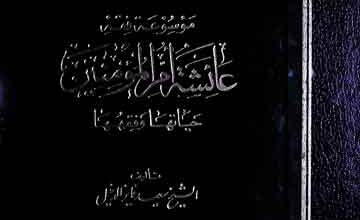 موسوعة فقه
عائشة أم المؤمنين
حياتها وفقهها
تأليف
الشيخ سعيد فايز الدخيل